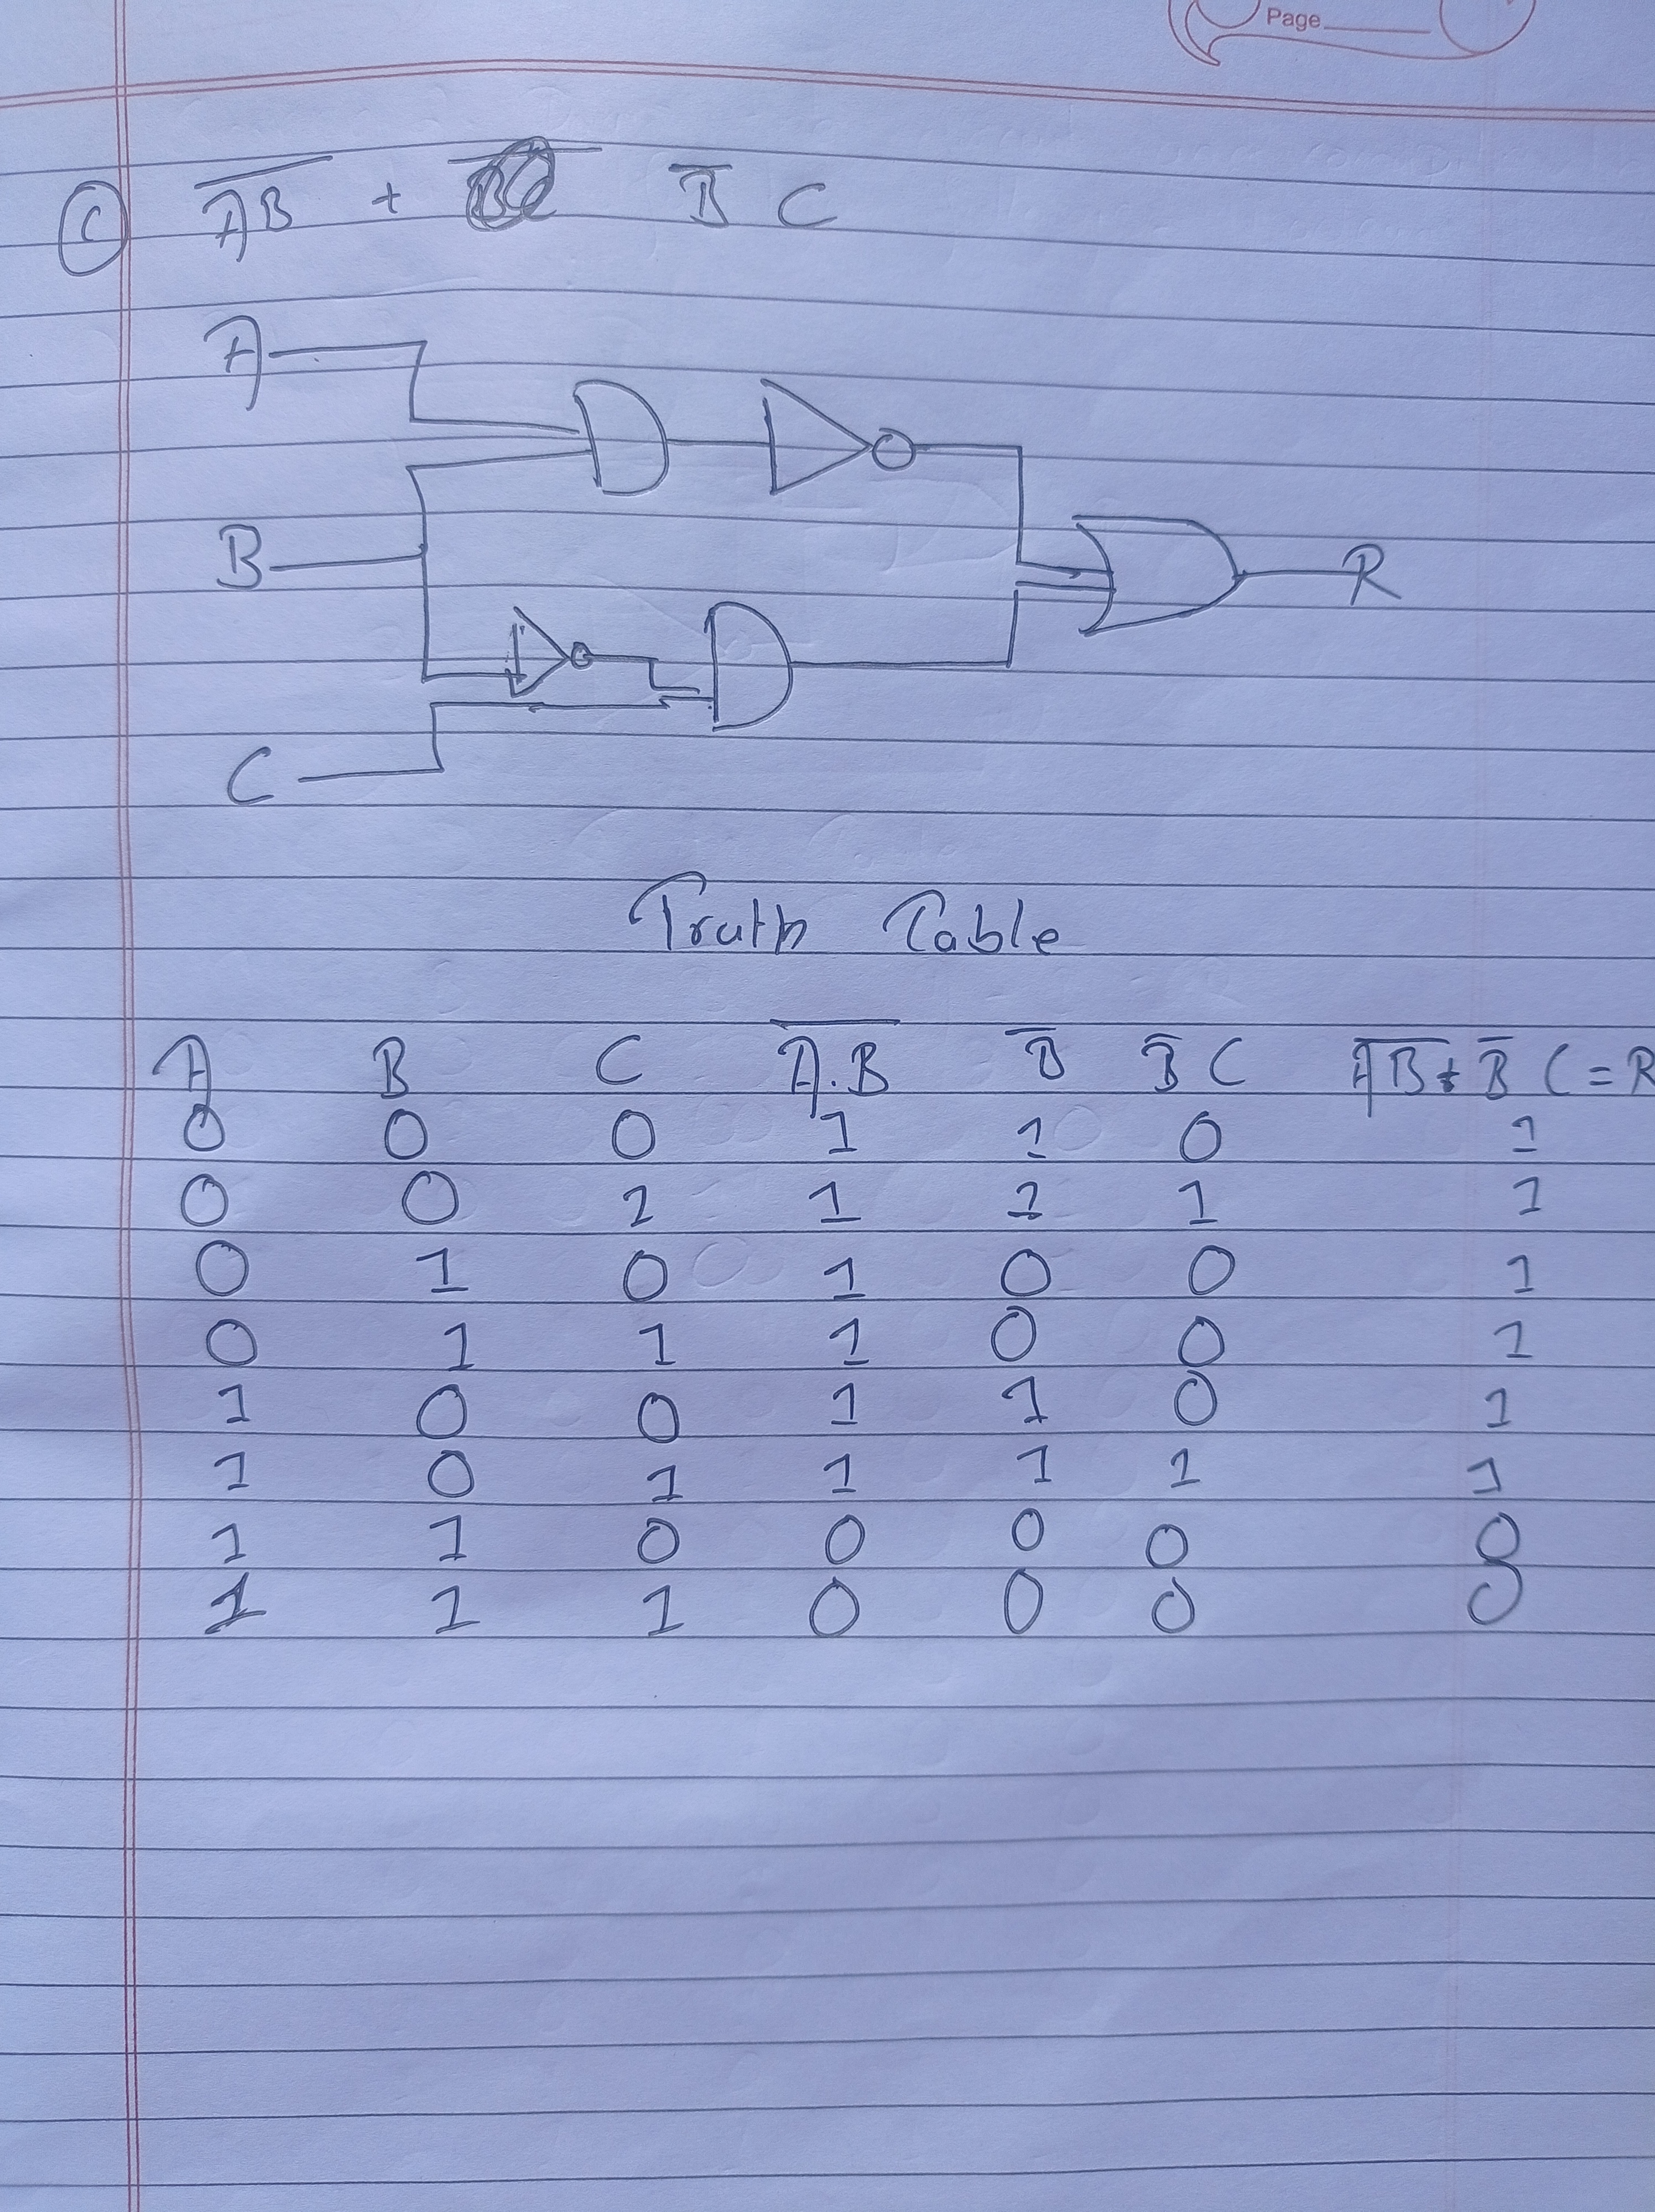 Page
(C) A̅B̅ + B̅ C
A
B
R
C
Truth Table
A B C A̅.̅B̅ B̅ B̅ C A̅B̅ + B̅ C = R
0 0 0 1 1 0 1
0 0 1 1 1 1 1
0 1 0 1 0 0 1
0 1 1 1 0 0 1
1 0 0 1 1 0 1
1 0 1 1 1 1 1
1 1 0 0 0 0 0
1 1 1 0 0 0 0